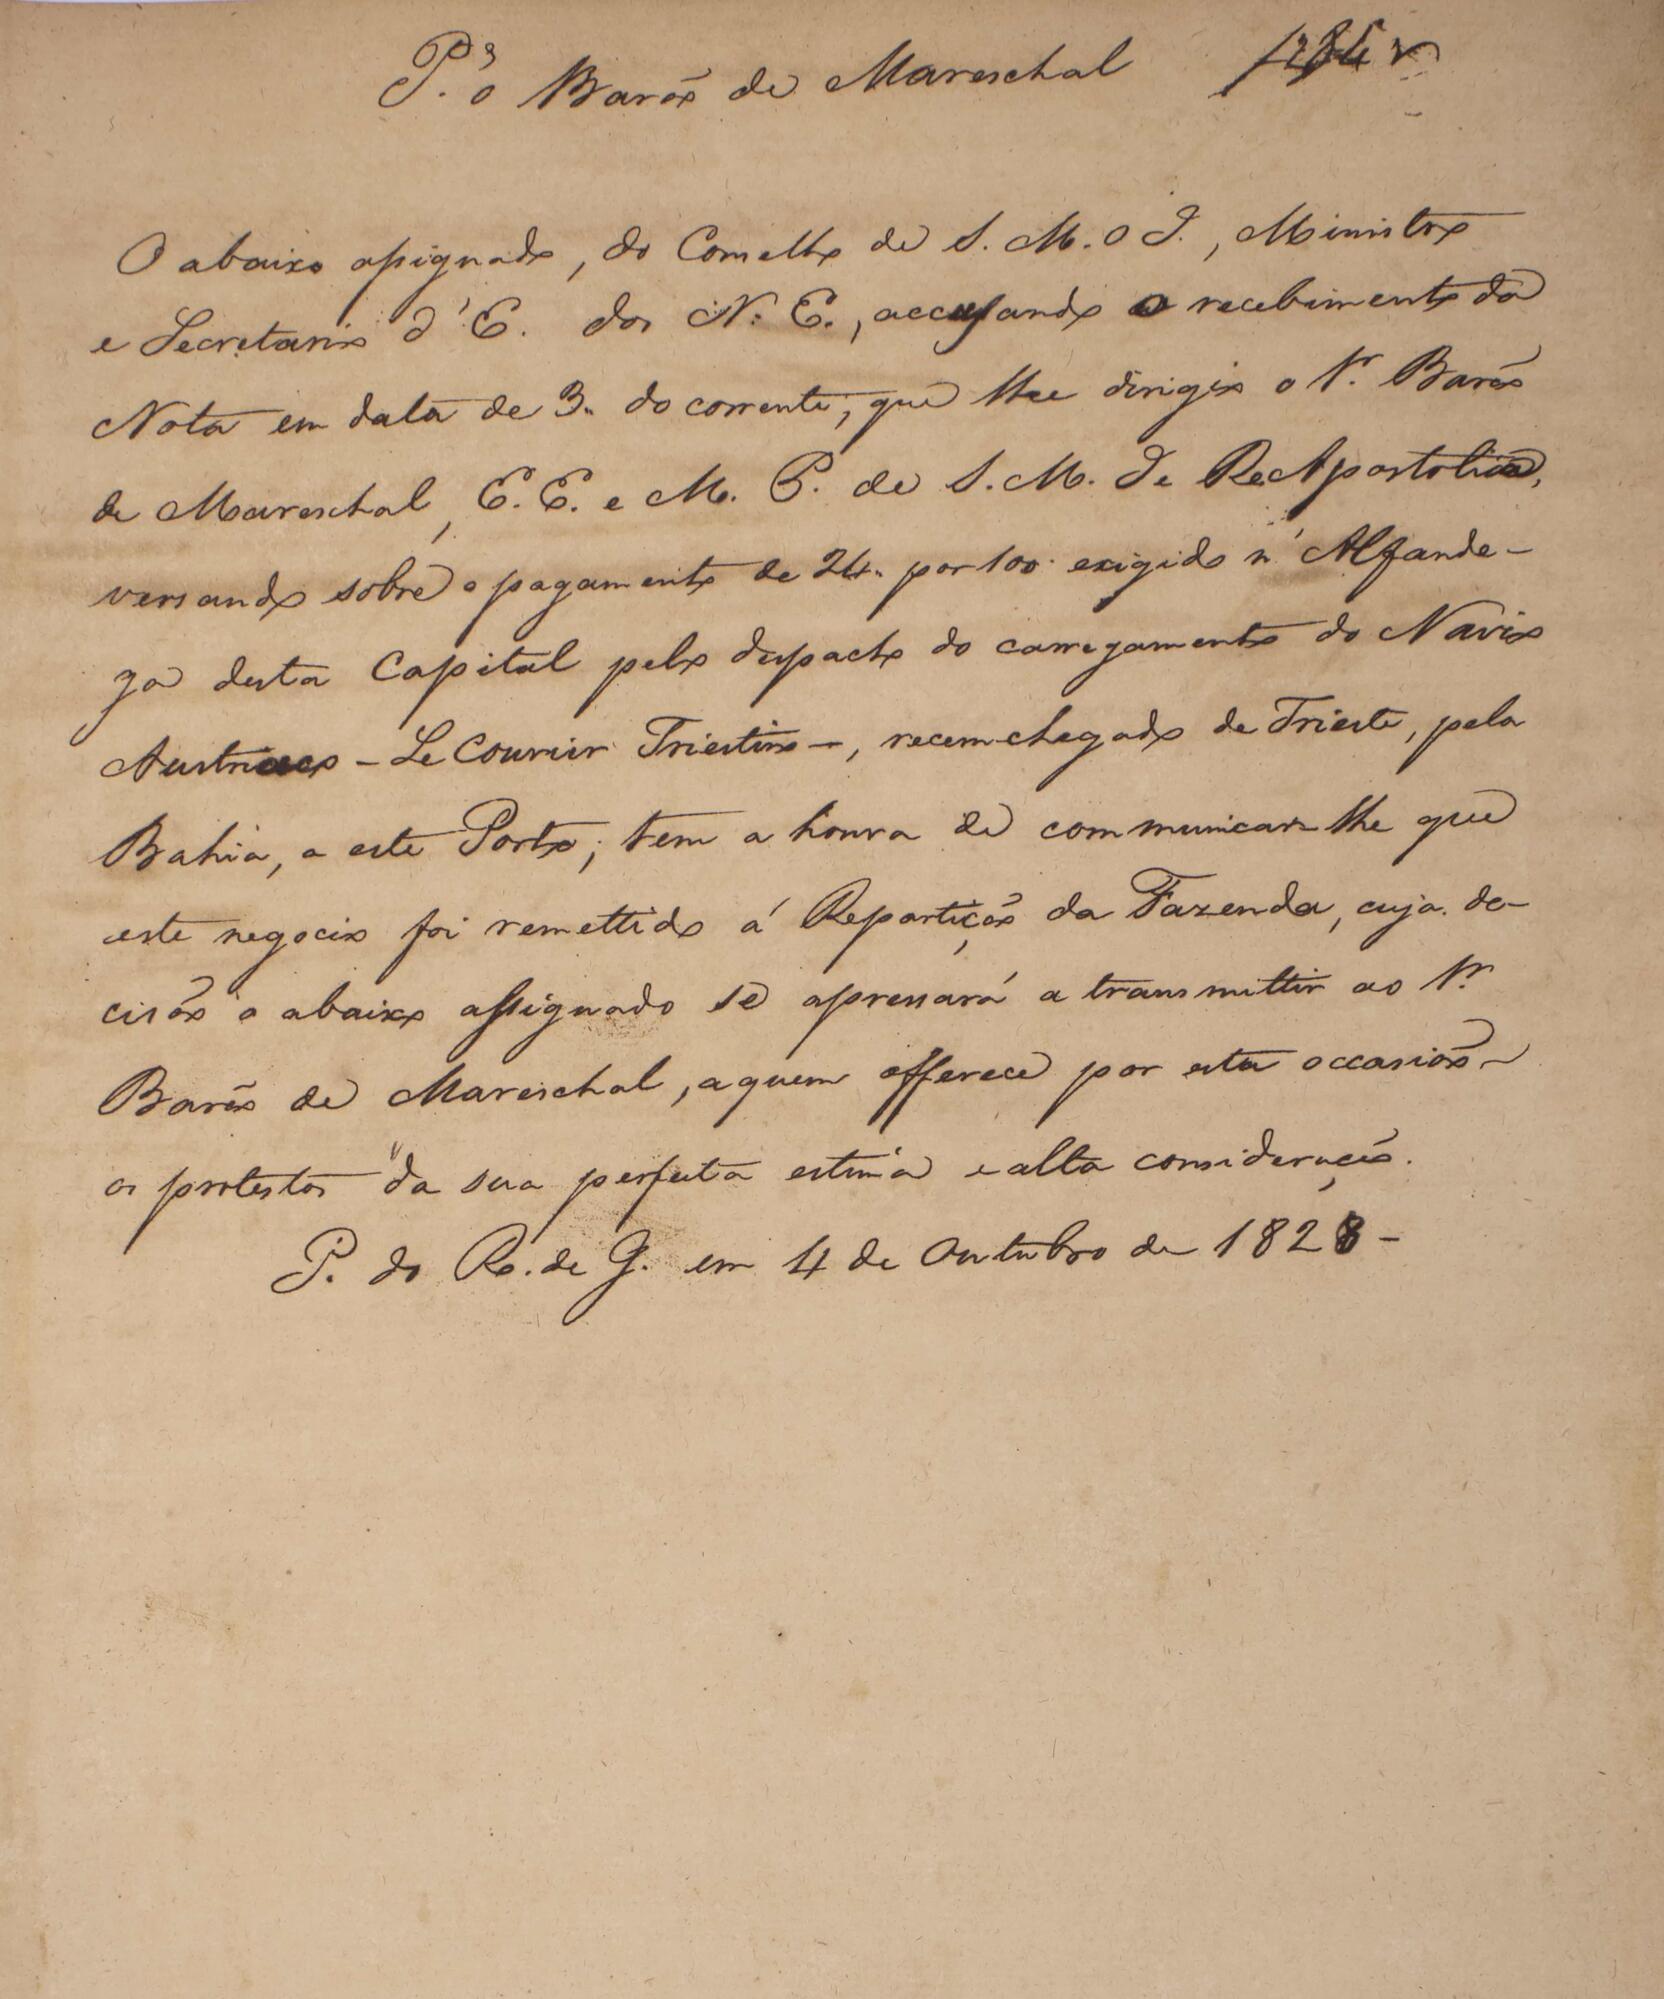 P.ª o Barão de Mareschal
O abaixo assignado, do Conselho de S. M. O I., Ministro
e Secretario d'E. dos N. E., accusando o recebimento da
Nota em data de 3. do corrente, que lhe dirigio o Sr. Barão
de Mareschal, E. E. e M. P. de S. M. I. e R. Apostolica,
versando sobre o pagamento de 24. por 100. exigido n'Alfande-
ga desta Capital pelo despacho do carregamento do Navio
Austriaco - Le Courier Triestino -, recemchegado de Trieste, pela
Bahia, a este Porto; tem a honra de communicar-lhe que
este negocio foi remettido á Repartição da Fazenda, cuja de-
cisão o abaixo assignado se apressará a transmittir ao Sr.
Barão de Mareschal, a quem offerece por esta occasião
os protestos da sua perfeita estima e alta consideração.
P. do R. de J. em 4 de Outubro de 1828 -